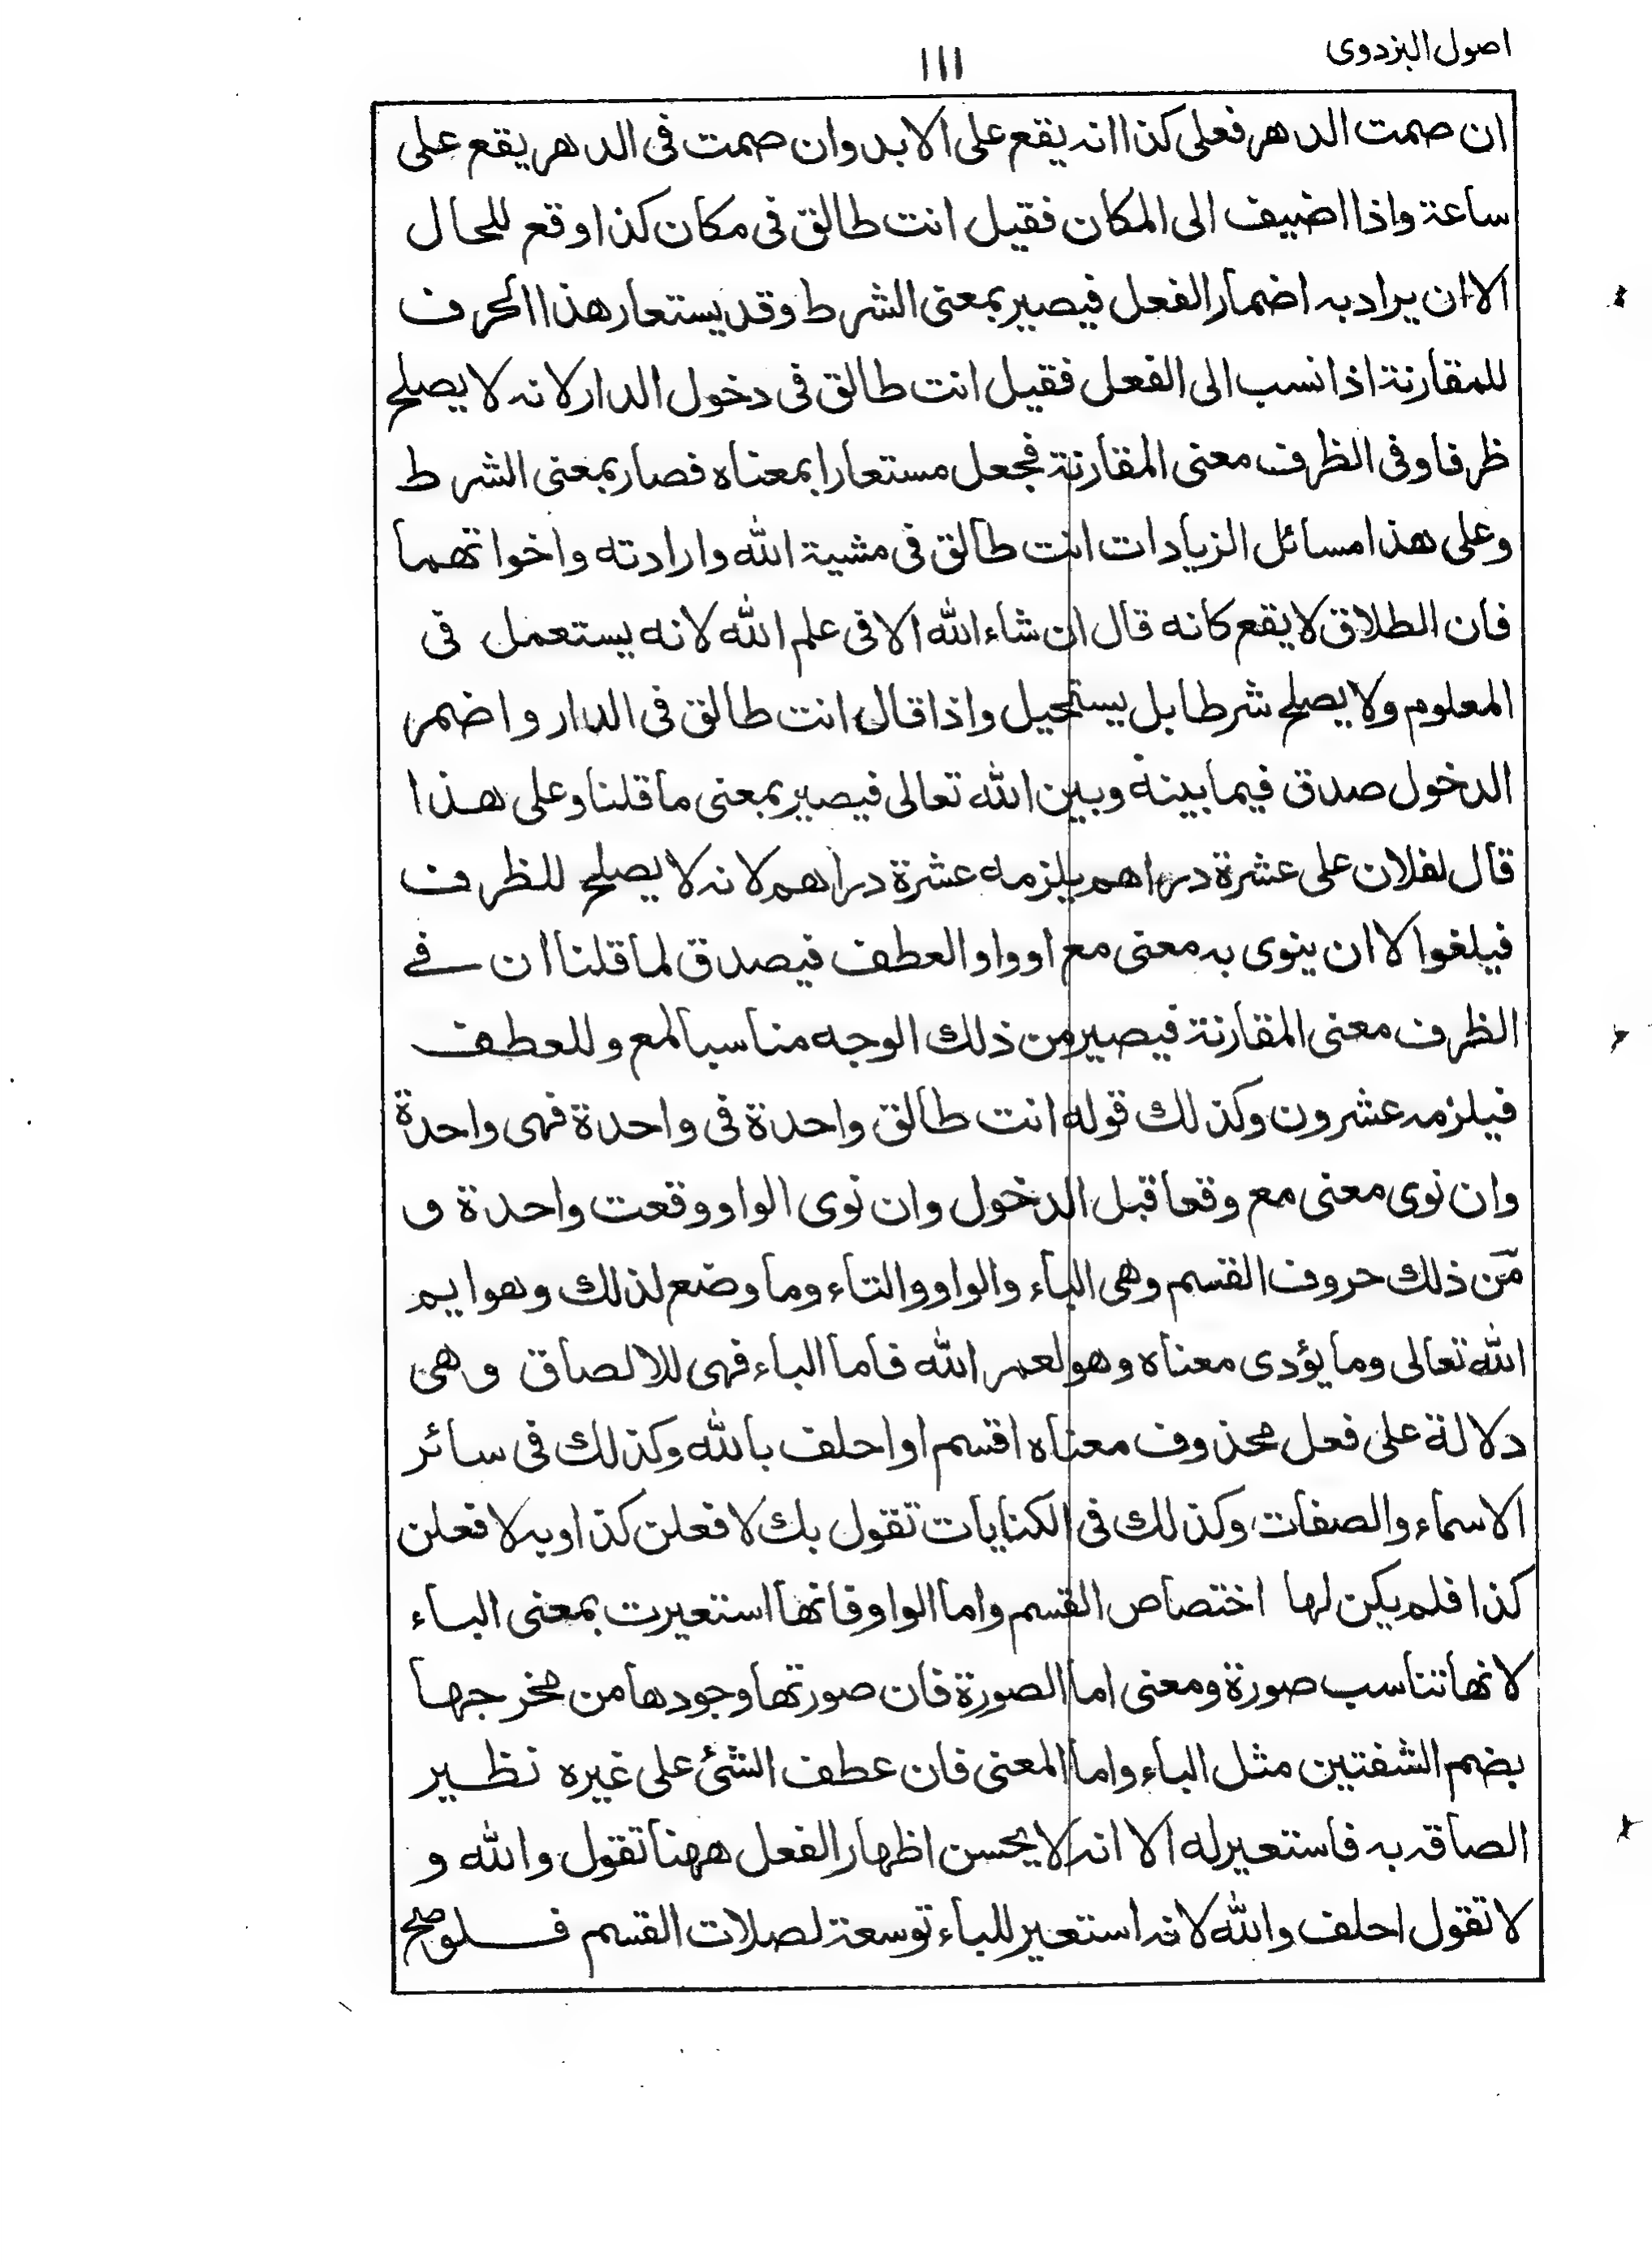 اصول البزدوى
١١١
ان صمت الدهر فعلى كذا انه يقع على الابد وان صمت فى الدهر يقع على
ساعة واذا اضيف الى المكان فقيل انت طالق فى مكان كذا وقع للحال
الا ان يراد به اضمار الفعل فيصير بمعنى الشرط وقد يستعار هذا الحرف
للمقارنة اذا نسب الى الفعل فقيل انت طالق فى دخول الدار لانه لا يصلح
ظرفا وفى الظرف معنى المقارنة فجعل مستعارا بمعناه فصار بمعنى الشرط
وعلى هذا مسائل الزيادات انت طالق فى مشية الله وارادته واخواتهما
فان الطلاق لا يقع كانه قال ان شاء الله الا فى علم الله لانه يستعمل فى
المعلوم ولا يصلح شرطا بل يستحيل واذا قال انت طالق فى الدار واضمر
الدخول صدق فيما بينه وبين الله تعالى فيصير بمعنى ما قلنا وعلى هذا
قال لفلان على عشرة دراهم يلزمه عشرة دراهم لانه لا يصلح للظرف
فيلغوا لا ان ينوى به معنى مع او واو العطف فيصدق لما قلنا ان فے
الظرف معنى المقارنة فيصير من ذلك الوجه مناسبا لمع وللعطف
فيلزمه عشرون وكذلك قوله انت طالق واحدة فى واحدة فهى واحدة
وان نوى معنى مع وقعا قبل الدخول وان نوى الواو وقعت واحدة و
من ذلك حروف القسم وهى الباء والواو والتاء وما وضع لذلك وهو ايم
الله تعالى وما يؤدى معناه وهو لعمر الله فاما الباء فهى للالصاق وهى
دلالة على فعل محذوف معناه اقسم او احلف بالله وكذلك فى سائر
الاسماء والصفات وكذلك فى الكنايات تقول بك لافعلن كذا وبه لافعلن
كذا فلم يكن لها اختصاص القسم واما الواو فانها استعيرت بمعنى الباء
لانها تناسب صورة ومعنى اما الصورة فان صورتها وجودها من مخرجها
بضم الشفتين مثل الباء واما المعنى فان عطف الشئ على غيره نظير
الصاقه به فاستعير له الا انه لا يحسن اظهار الفعل ههنا تقول والله و
لا تقول احلف والله لانه استعير للباء توسعة لصلات القسم فلو صح